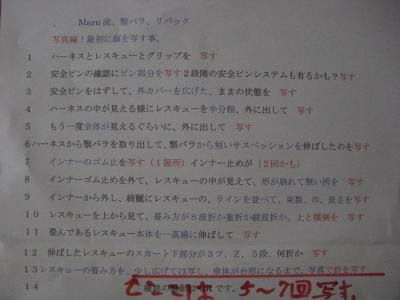 Maru流、緊パラ、リパック
写真編！最初に顔を写す事、
1 ハーネスとレスキューとグリップを 写す
2 安全ピンの確認にピン部分を写す２段階の安全ピンシステムも有るかも？写す
3 安全ピンをはずして、外カバーを広げた、ままの状態を 写す
4 ハーネスの中が見える様にレスキューを半分程、外に出して 写す
5 もう一度全体が見えるぐらいに、外に出して 写す
6 ハーネスから緊パラを取り出して、緊パラから短いサスペッションを伸ばしたのを写す
7 インナーのゴム止を写す（１箇所）インナー止めが（２回かも）
8 インナーゴム止めを外て、レスキューの中が見えて、形が崩れて無い所を 写す
9 インナーから外し、綺麗にレスキューの、ラインを並べて、束数、巾、長さを写す
10 レスキューを上から見て、畳み方がＳ波折か重折か縦波折か、上と横側を 写す
11 畳んであるレスキュー本体を一直線に伸ばして 写す
12 伸ばしたレスキューのスカート下部分が３ツ、Ｚ、５段、何折か 写す
13 レスキューの畳み方を、少し広げては写し、傘体が台形になるまで、写真で折を写す
14 です。
5〜7回写す。